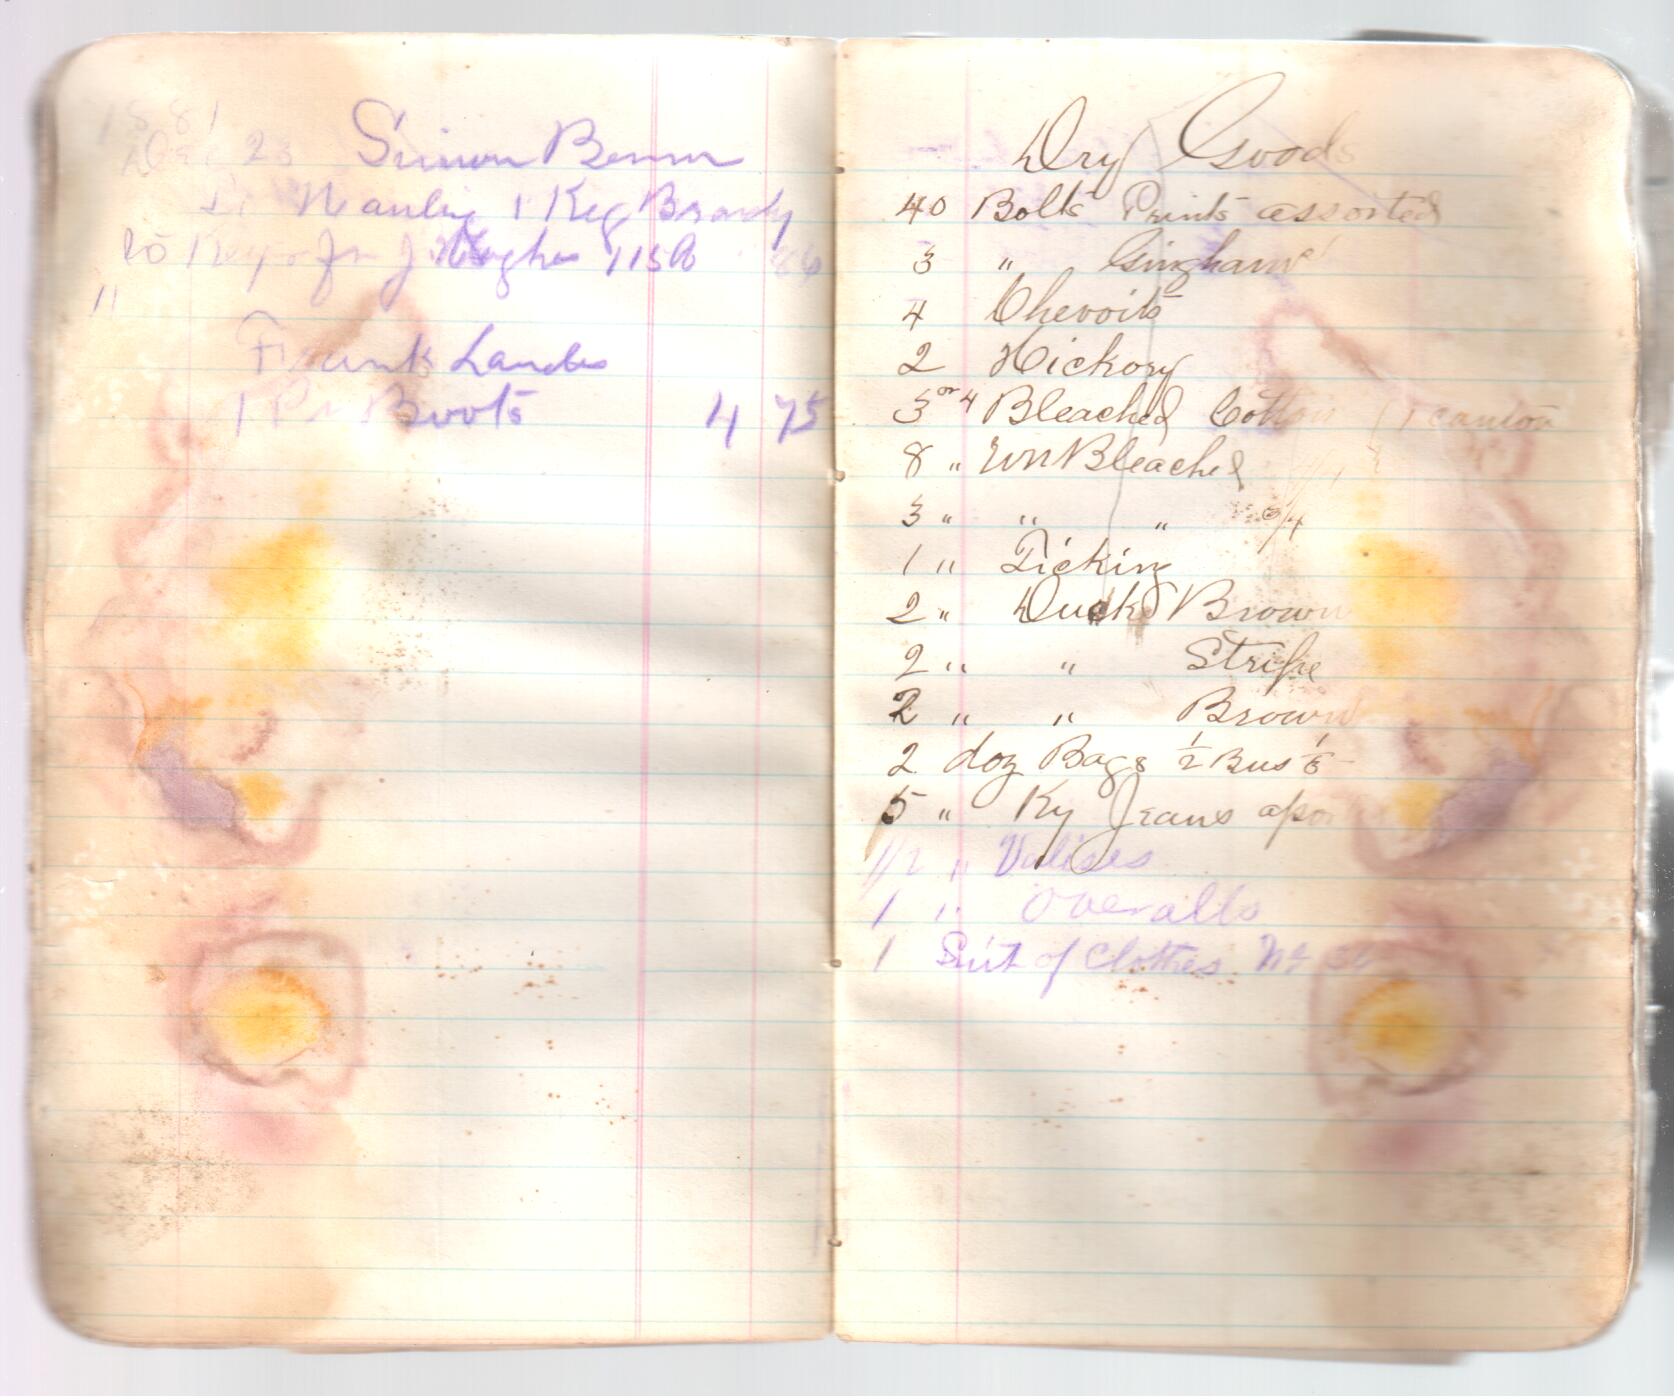 1881
Dec 23 Simon
1 Keg Brandy
J Hughes 115
"
Frank Landes
1 Pr Boots 4 75
Dry Goods
40 Bolts Prints assorted
3 " Gingham
4 Chevoits
2 Hickory
3 or 4 Bleached Cotton 1 canton
8 " UnBleached
3 " " " 6/4
1 " Ticking
2 " Duck Brown
2 " " Stripe
2 " " Brown
2 doz Bags 1/2 Bus
5 " Ky Jeans
1/2 " Valises
1 " Overalls
1 Suit of Clothes No